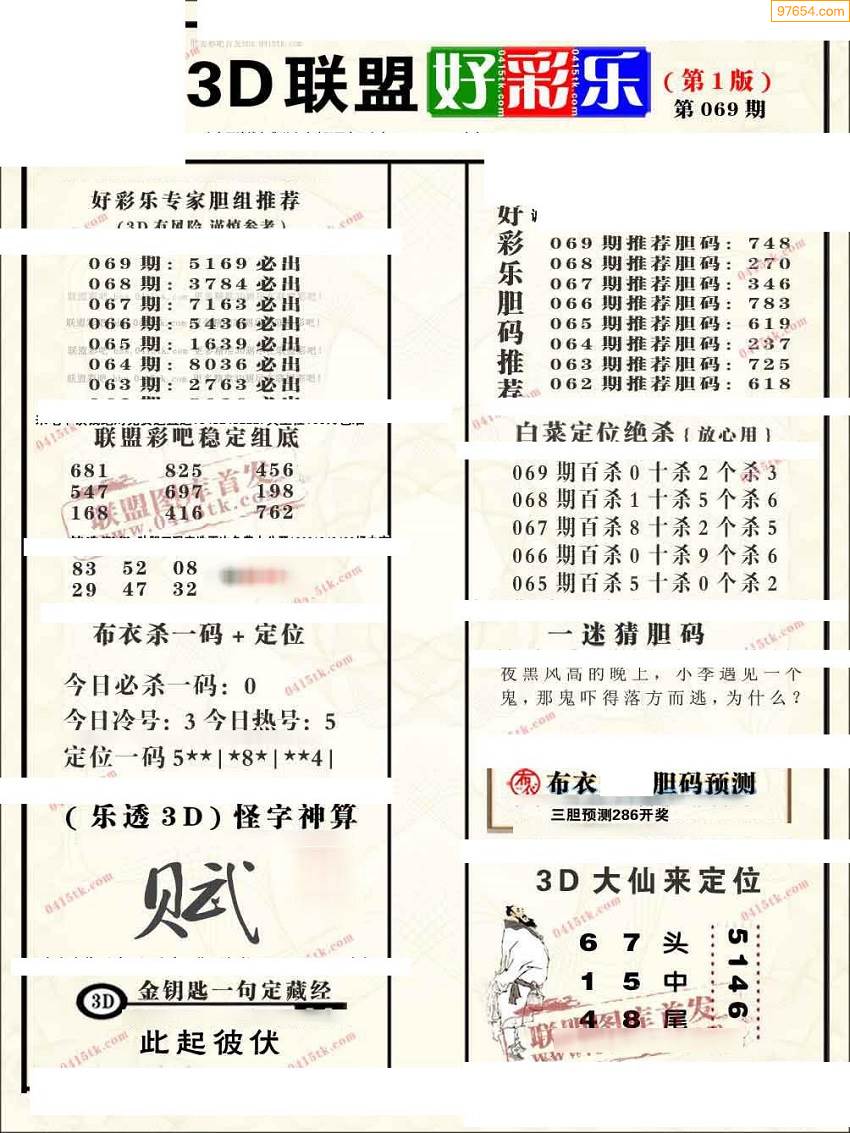 97654.com
3D联盟好彩乐
(第1版)
第069期
好彩乐专家胆组推荐
(3D有风险 谨慎参考)
069期:5169必出
068期:3784必出
067期:7163必出
066期:5436必出
065期:1639必出
064期:8036必出
063期:2763必出
联盟彩吧稳定组底
681 825 456
547 697 198
168 416 762
联盟图库首发
www.0415tk.com
83 52 08
29 47 32
布衣杀一码+定位
今日必杀一码:0
今日冷号:3 今日热号:5
定位一码5**|*8*|**4|
(乐透3D)怪字神算
赋
3D
金钥匙一句定藏经
此起彼伏
好彩乐胆码推荐
069期推荐胆码:748
068期推荐胆码:270
067期推荐胆码:346
066期推荐胆码:783
065期推荐胆码:619
064期推荐胆码:237
063期推荐胆码:725
062期推荐胆码:618
白菜定位绝杀{放心用}
069期百杀0十杀2个杀3
068期百杀1十杀5个杀6
067期百杀8十杀2个杀5
066期百杀0十杀9个杀6
065期百杀5十杀0个杀2
一迷猜胆码
夜黑风高的晚上,小李遇见一个
鬼,那鬼吓得落方而逃,为什么?
布衣 胆码预测
三胆预测286开奖
3D大仙来定位
6 7 头
1 5 中
4 8 尾
5146
联盟图库首发
0415tk.com